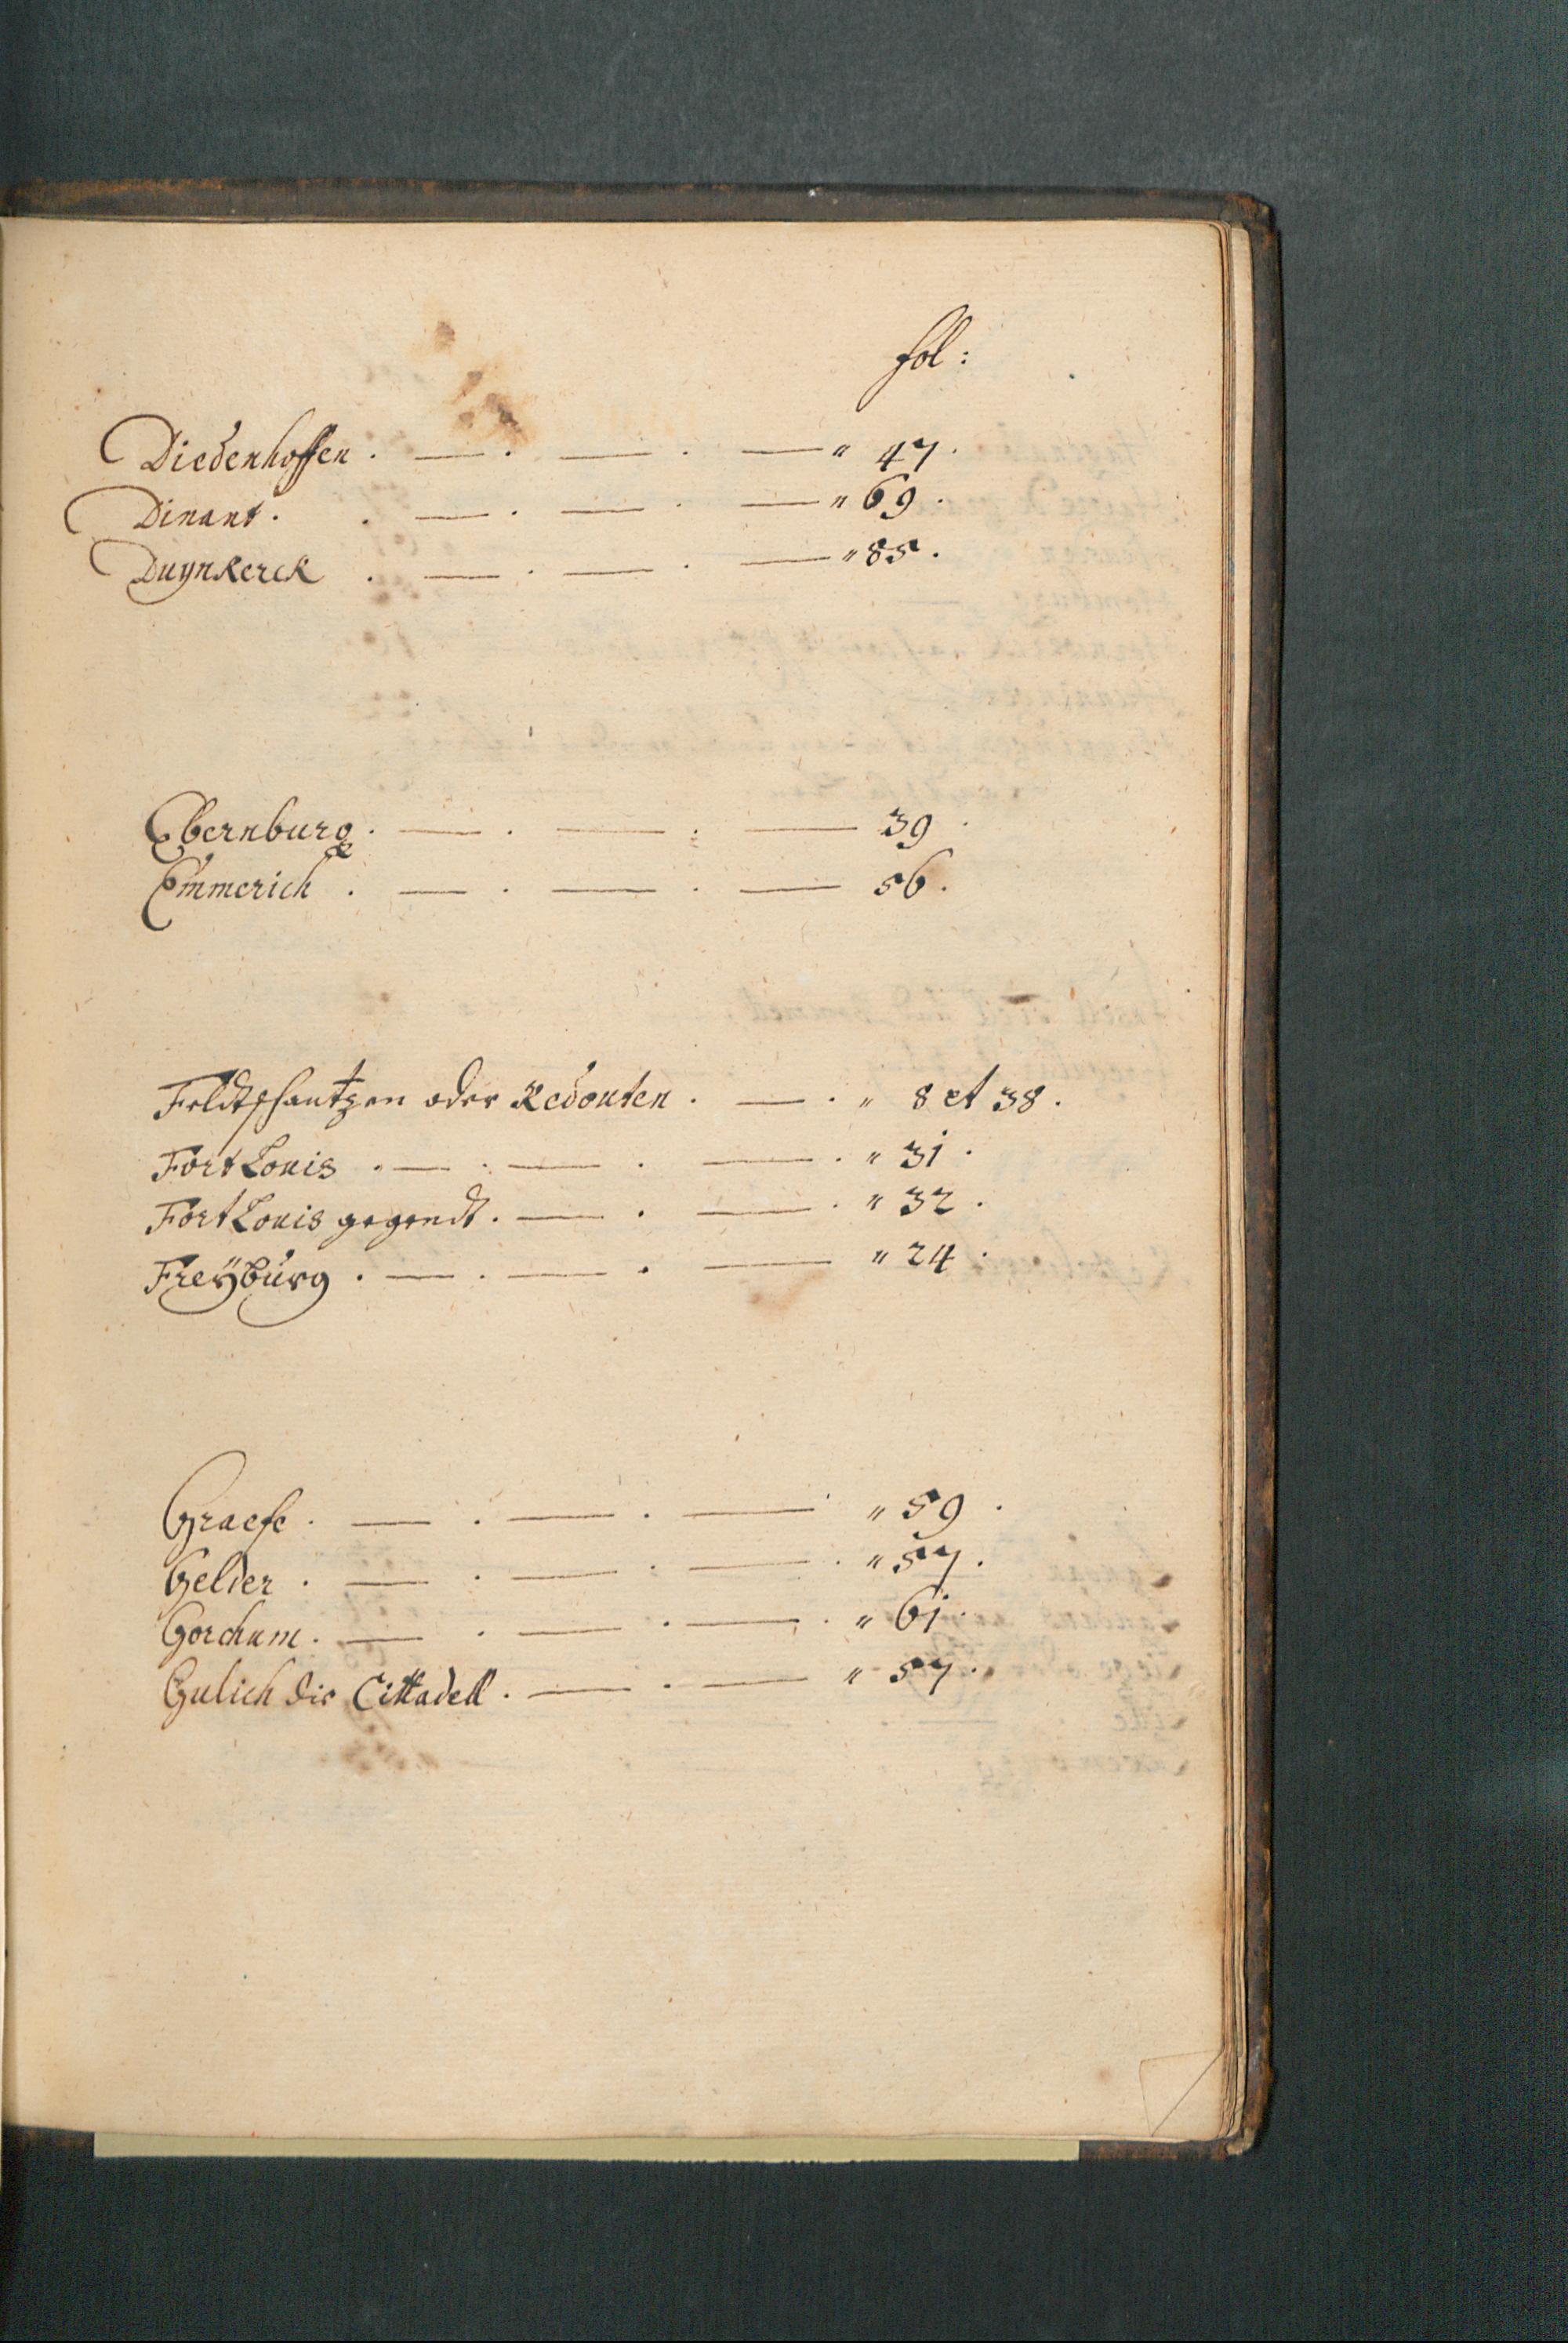 fol:
Diedenhoffen. — . — . — " 47.
Dinant. . — . — . — " 69.
Duynkerck . — . — . — " 85.
Ebernburg. — . — . — 39.
Emmerich . — . — . — 56.
Feldtschantzen oder Redouten. — . " 8 et 38.
Fort Louis . — . — . — . " 31.
Fort Louis gegendt. — . — . " 32.
Freÿburg. — . — . — " 24.
Graefe. — . — . — " 59.
Gelder. — . — . — . " 57.
Gorchum. — . — . — . " 61.
Gulich die Cittadell. — . — " 57.